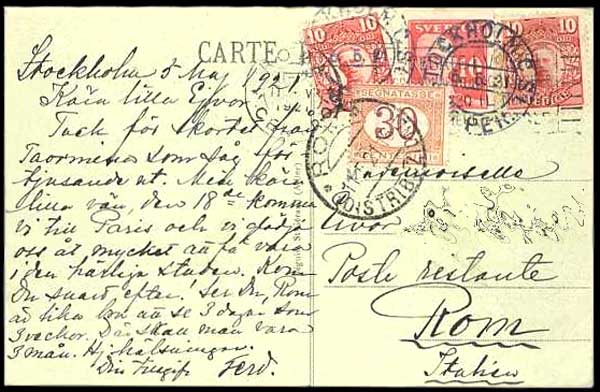 CARTE
Stockholm 5 Maj 1921.
Kära lilla Eivor!
Tack för kortet från
Taormina som såg för
tjusande ut. Min kära
lilla vän, den 18de komma
vi till Paris och vi glädja
oss åt mycket att få vara
i den härliga staden. Kom
Du snart efter! Ser Du, Rom
är lika bra att se 3 dagar som
3 veckor. Där skall man vara
3 mån. Hj. hälsningar
Din
Ferd.
10
10
SVERIGE
SEGNATASSE
30
CENTESIMI
STOCKHOLM
5.5.21
ROMA
DISTRIBUZ
Mademoiselle
Eivor
Poste restante
Rom
Italien